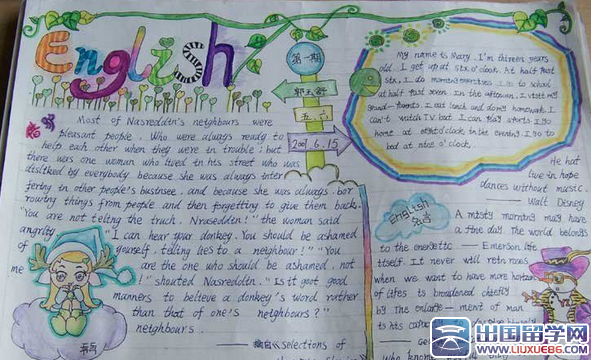 English
第一期
郭玉舒
五.六
2007.6.15
My name is Mary. I'm thirteen years
old. I get up at six o'clock. At half past
six, I do morning exercises. I go to school
at half past seven. In the afternoon. I
grand
can't watch TV. but I can play
home at o'clock in the evening. I go to
bed at nine o'clock.
Most of Nasreddin's neighbours were
pleasant people. Who were always ready to
help each other when they were in trouble; but
there was one woman who lived in his street who was
disliked by everybody because she was always inter
fering in other people's and because she was always bor
rowing things from people and then forgetting to give them back.
"You are not telling the truch. Nraseddin!" the woman said
angrily "I can hear your donkey. You should be ashamed
of yourself. telling lies to a neighbour!" "You
me are the one who should be ashamed. not
!" shouted Nasreddin. "Is it good
manners to believe a donkey's word rather
than that of one's neighbours?"
neighbour's.
selections of
He
live in hope
dances without music.
—— Walt Disney
English
名言
A misty morning may have
a fine day. The world belongs
to the energetic — Emerson life
itself. It never will
when we want to have more
of lifes is broadened
by The enlarge — ment of man
to his
who
出国留学网
www.liuxue86.com